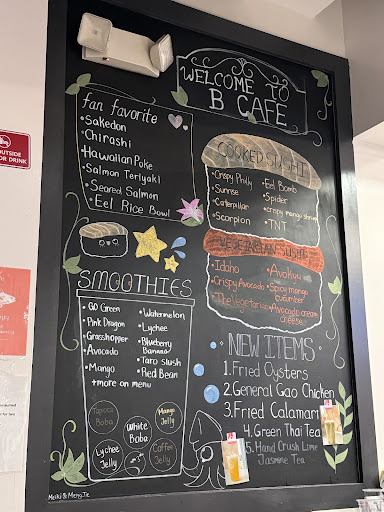 WELCOME TO
B CAFE
fan favorite
• Sakedon
• Chirashi
• Hawaiian Poke
• Salmon Teriyaki
• Seared Salmon
• Eel Rice Bowl
COOKED SUSHI
• Crispy Philly
• Sunrise
• Caterpillar
• Scorpion
• Eel Bomb
• Spider
• crispy mango shrimp
• TNT
VEGETARIAN SUSHI
• Idaho
• Crispy Avocado
• The Vegetarian
• Avokyu
• Spicy mango
cucumber
• Avocado cream
cheese
SMOOTHIES
• GO Green
• Pink Dragon
• Grasshopper
• Avocado
• Mango
• Watermelon
• Lychee
• Blueberry
Banana
• Taro slush
• Red Bean
+more on menu
Tapioca
Boba
Mango
Jelly
White
Boba
Lychee
Jelly
Coffee
Jelly
• NEW ITEMS •
1. Fried Oysters
2. General Gao Chicken
3. Fried Calamari
4. Green Thai Tea
5. Hand Crush Lime
Jasmine Tea
OUTSIDE
OR DRINK